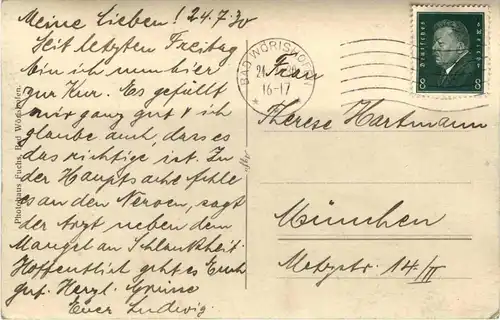 Meine Lieben! 24.7.30
Seit letzten Freitag
bin ich nun hier
zur Kur. Es gefällt
mir ganz gut & ich
glaube auch, dass es
das richtige ist. In
der Hauptsache fehle
es an den Nerven, sagt
der Arzt neben dem
Mangel an Schlankheit.
Hoffentlich geht es Euch
gut. Herzl. Grüsse
Euer Ludwig.
Photohaus Fuchs, Bad Wörishofen.
BAD WÖRISHOFEN
16-17
Deutsches Reich
8 8
Frau
Therese Hartmann
München
Metzstr. 14/II